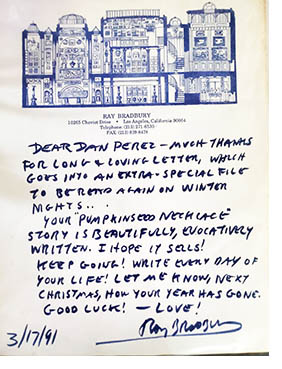 RAY BRADBURY
10265 Cheviot Drive • Los Angeles, California 90064
Telephone:
FAX
DEAR DAN PEREZ — MUCH THANKS
FOR LONG & LOVING LETTER, WHICH
GOES INTO AN EXTRA-SPECIAL FILE
TO BE REREAD AGAIN ON WINTER
NIGHTS...
YOUR "PUMPKINSEED NECKLACE"
STORY IS BEAUTIFULLY, EVOCATIVELY
WRITTEN. I HOPE IT SELLS!
KEEP GOING! WRITE EVERY DAY OF
YOUR LIFE! LET ME KNOW, NEXT
CHRISTMAS, HOW YOUR YEAR HAS GONE.
GOOD LUCK! — LOVE!
3/17/91 Ray Bradbury